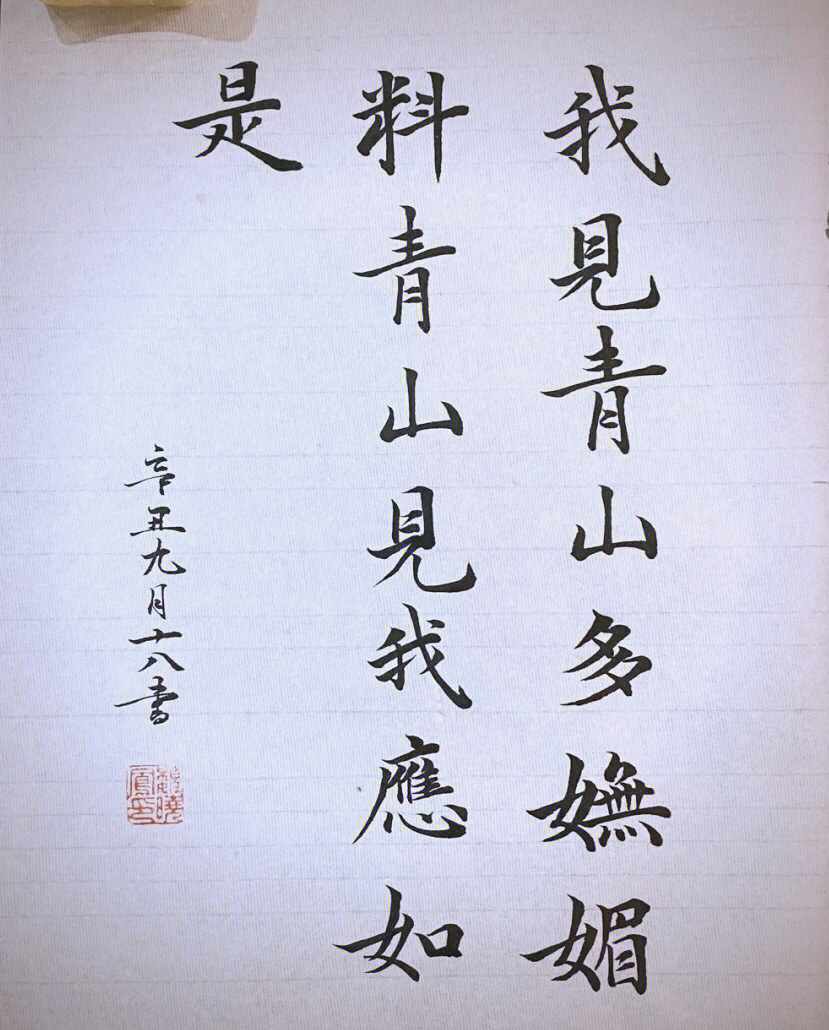 我見青山多嫵媚
料青山見我應如
是
辛丑九月十八書